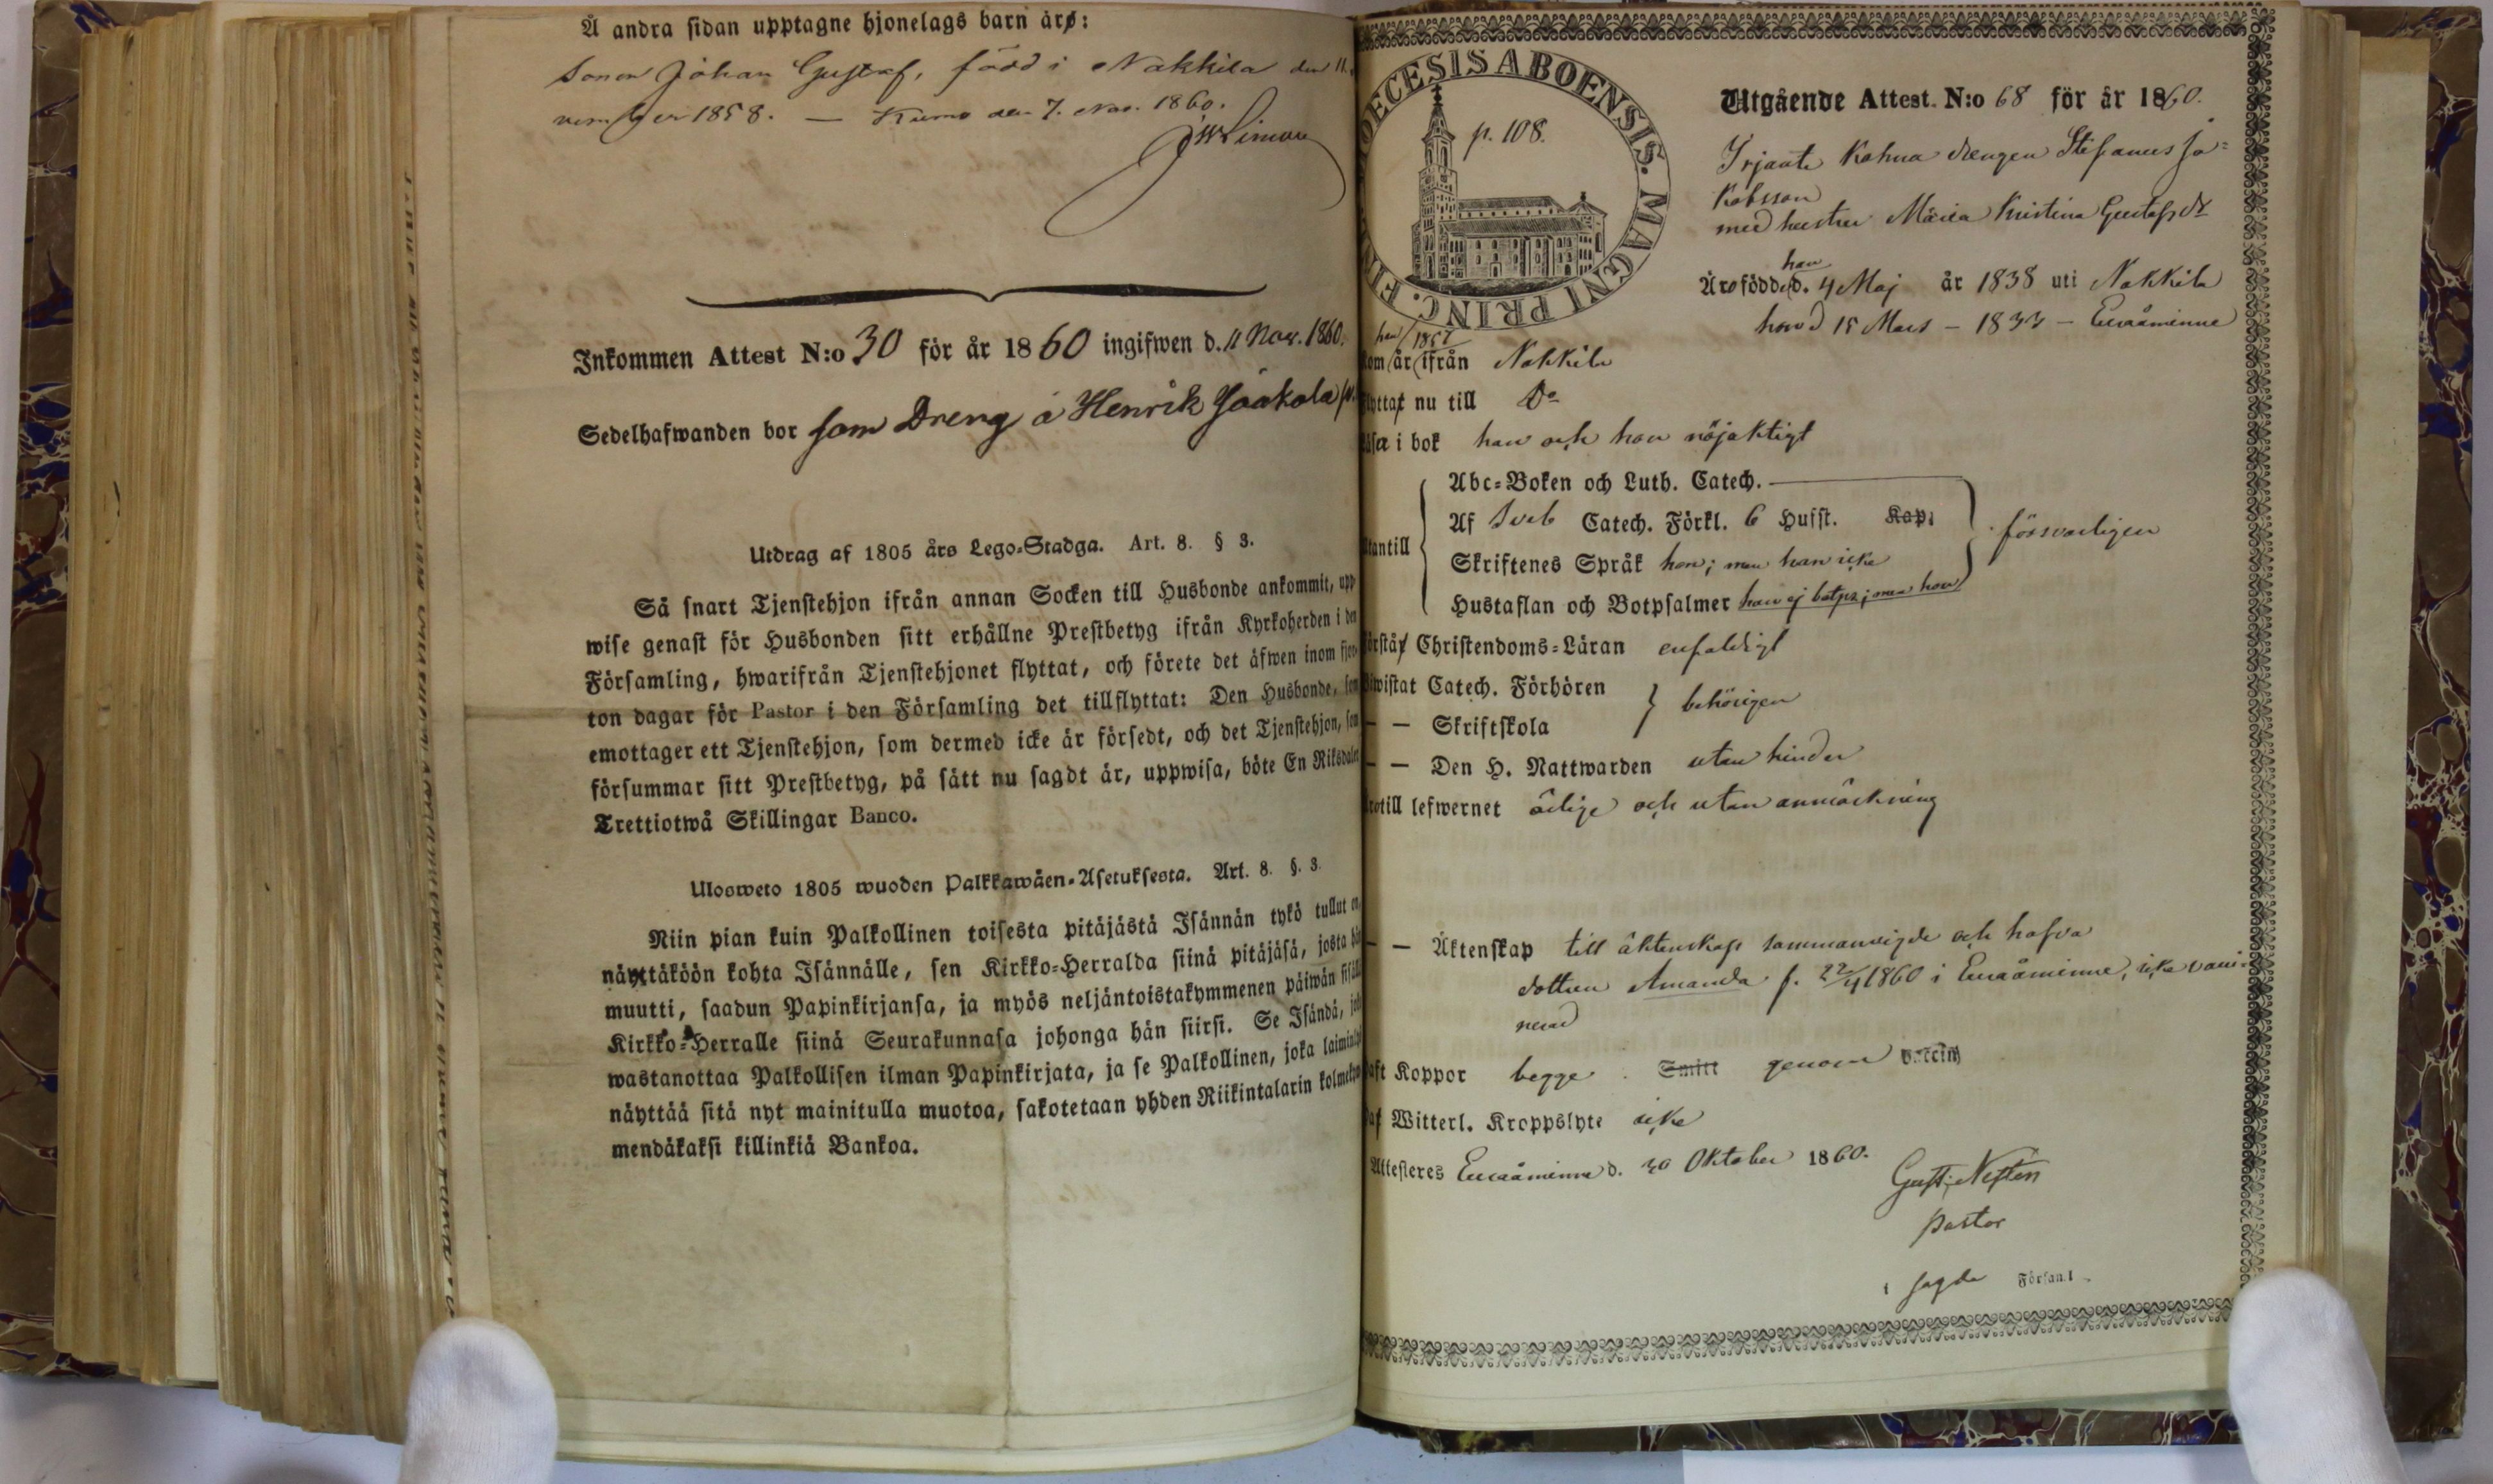 Å andra sidan upptagne hjonelags barn äro:
Sonen Johan Gustaf, född i Nakkila den 11.
vember 1858. — Kumo den 7. Nov. 1860.
Inkommen Attest N:o 30 för år 1860 ingifwen d. 11 Nov. 1860.
Sedelhafwanden bor som Dreng å Henrik Jaakola
Utdrag af 1805 års Lego-Stadga. Art. 8. § 3.
Så snart Tjenstehjon ifrån annan Socken till Husbonde ankommit, upp-
wise genast för Husbonden sitt erhållne Prestbetyg ifrån Kyrkoherden i den
Församling, hwarifrån Tjenstehjonet flyttat, och förete det äfwen inom fjor-
ton dagar för Pastor i den Församling det tillflyttat: Den Husbonde, som
emottager ett Tjenstehjon, som dermed icke är försedt, och det Tjenstehjon, som
försummar sitt Prestbetyg, på sätt nu sagdt är, uppwisa, böte En Riksdaler
Trettiotwå Skillingar Banco.
Ulosweto 1805 wuoden Palkkawäen-Asetuksesta. Art. 8. §. 3.
Niin pian kuin Palkollinen toisesta pitäjästä Isännän tykö tullut on,
näyttäköön kohta Isännälle, sen Kirkko-Herralda siinä pitäjäsä, josta hän
muutti, saadun Papinkirjansa, ja myös neljäntoistakymmenen päiwän sisällä
Kirkko-Herralle siinä Seurakunnasa johonga hän siirsi. Se Isändä, joka
wastanottaa Palkollisen ilman Papinkirjata, ja se Palkollinen, joka laiminlyö
näyttää sitä nyt mainitulla muotoa, sakotetaan yhden Riikintalarin kolmekym-
mendäkaksi killinkiä Bankoa.
DIOECESIS ABOENSIS. MAGNI PRINC. FIN
p. 108.
Utgående Attest. N:o 68 för år 1860.
Irjante Kahna drengen Stefanus Ja-
kobsson
med hustru Maria Kristina Gustafsdr
han
Äro födde d. 4 Maj år 1838 uti Nakkila
hon d 15 Mars – 1833 – Euraåminne
han 1857
kom år ifrån Nakkila
flyttat nu till Do
läsa i bok han och hon nöjaktigt
Abc-Boken och Luth. Catech.
Af Sveb Catech. Förkl. 6 Hufst. Kap.
Utantill
Skriftenes Språk hon; men han icke
försvarligen
Hustaflan och Botpsalmer han ej botps; men hon
förstår Christendoms-Läran enfaldigt
Biwistat Catech. Förhören
behörigen
— — Skriftskola
— — Den H. Nattwarden utan hinder
Äro till lefwernet ärlige och utan anmärkning
— — Äktenskap till äktenskap sammanvigde och hafva
dottren Amanda f. 22/4 1860 i Euraåminne, icke vacci-
nerad
haft Koppor begge genom vaccin
Witterl. Kroppslyte icke
Attesteres Euraåminne d. 30 Oktober 1860.
Gust. Nestén
Pastor
i sagde Församl.